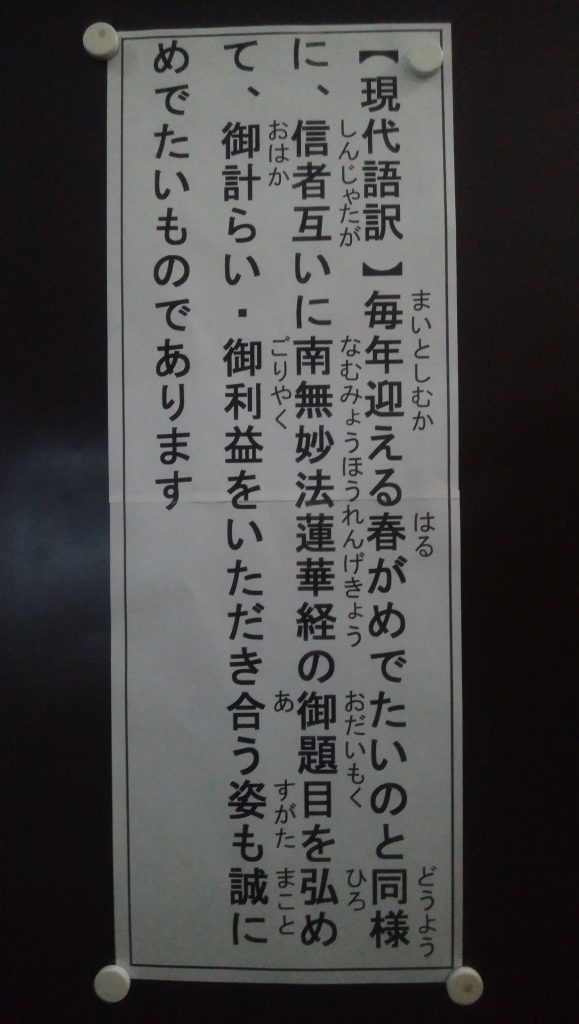 【現代語訳】毎年迎える春がめでたいのと同様
に、信者互いに南無妙法蓮華経の御題目を弘め
て、御計らい・御利益をいただき合う姿も誠に
めでたいものであります
まいとしむか はる どうよう
しんじゃたが なむみょうほうれんげきょう おだいもく ひろ
おはか ごりやく あ すがた まこと